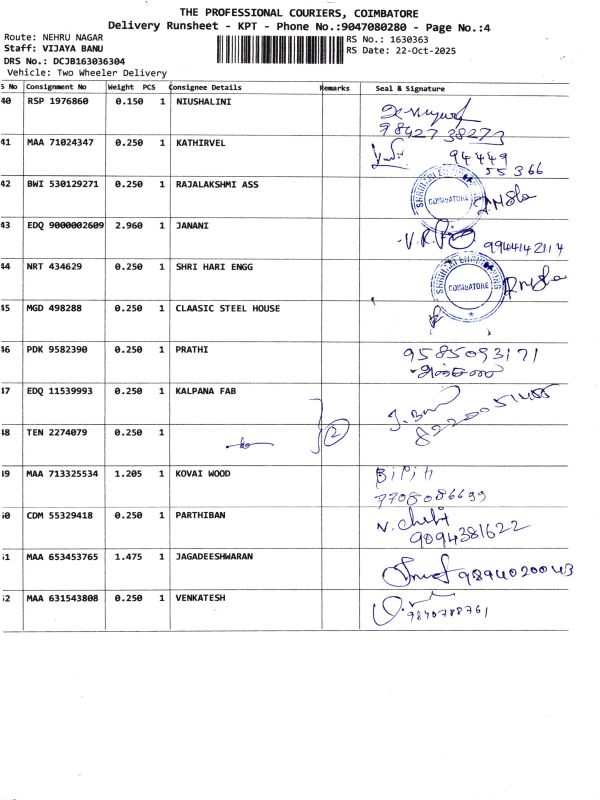 THE PROFESSIONAL COURIERS, COIMBATORE
Delivery Runsheet - KPT - Phone No.:9047080280 - Page No.:4
Route: NEHRU NAGAR
RS No.: 1630363
Staff: VIJAYA BANU
RS Date: 22-Oct-2025
DRS No.: DCJB163036304
Vehicle: Two Wheeler Delivery
S No Consignment No Weight PCS Consignee Details Remarks Seal & Signature
40 RSP 1976860 0.150 1 NIUSHALINI
98427 38273
41 MAA 71024347 0.250 1 KATHIRVEL
94449
55366
42 BWI 530129271 0.250 1 RAJALAKSHMI ASS
COIMBATORE
43 EDQ 9000002609 2.960 1 JANANI
9944142114
44 NRT 434629 0.250 1 SHRI HARI ENGG
COIMBATORE
45 MGD 498288 0.250 1 CLAASIC STEEL HOUSE
46 PDK 9582390 0.250 1 PRATHI
9585093171
47 EDQ 11539993 0.250 1 KALPANA FAB
8220051455
48 TEN 2274079 0.250 1
2
49 MAA 713325534 1.205 1 KOVAI WOOD
Bipin
7708086699
50 CDM 55329418 0.250 1 PARTHIBAN
9094381622
51 MAA 653453765 1.475 1 JAGADEESHWARAN
9894020043
52 MAA 631543808 0.250 1 VENKATESH
9840788761